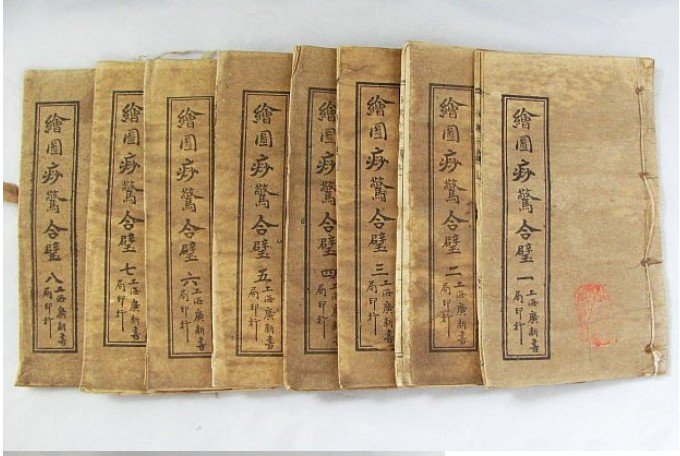 繪圖痧驚合璧 一
上海廣新書
局印行
繪圖痧驚合璧 二
上海廣新書
局印行
繪圖痧驚合璧 三
上海廣新書
局印行
繪圖痧驚合璧 四
上海廣新書
局印行
繪圖痧驚合璧 五
上海廣新書
局印行
繪圖痧驚合璧 六
上海廣新書
局印行
繪圖痧驚合璧 七
上海廣新書
局印行
繪圖痧驚合璧 八
上海廣新書
局印行